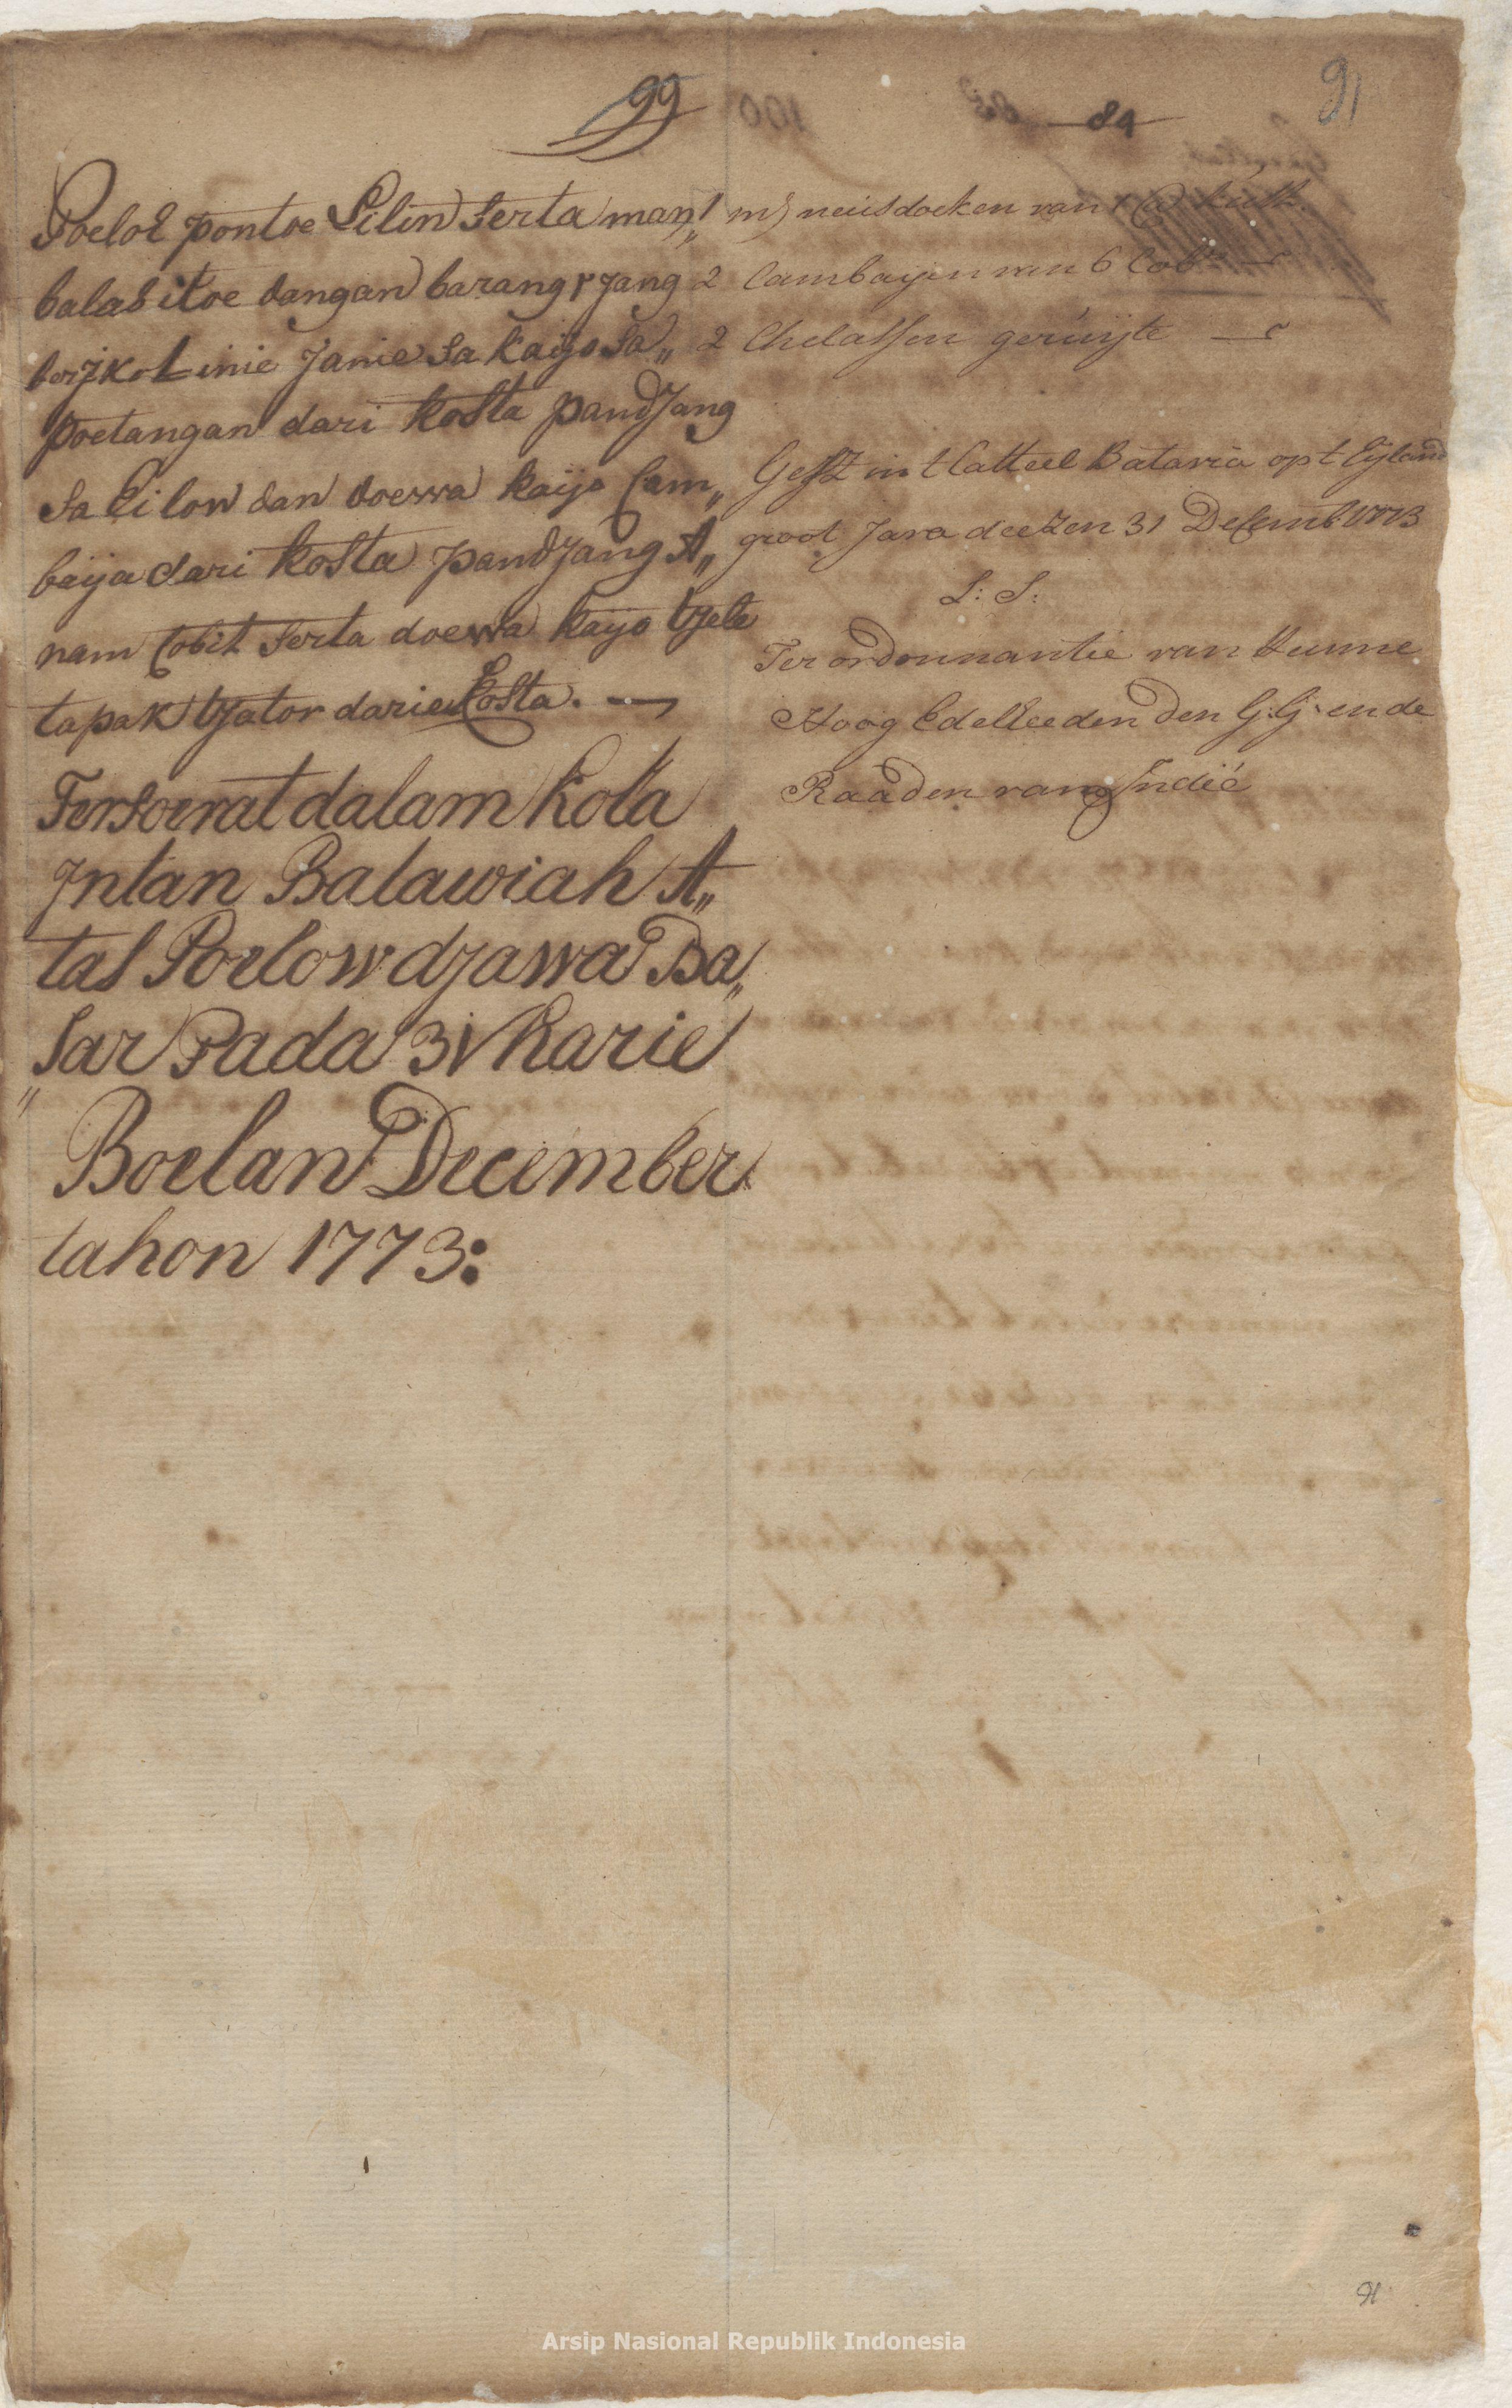 99
89
91
Poeloe pontoe Lilin serta man„
balas itoe dangan barang r jang
berjkot inie Janie sa kaijo sa„
poetangan dari kosta pandjang
sa Cilon dan doewa kaijo Cam„
baija dari kosta pandjang A„
nam Cobit serta doewa kaijo tjele
tapak tjator darie Kosta.
Tersoerat dalam Kota
Intan Batawiah A„
tas Poelow djawa Ba„
„sar Pada 31 harie
Boelan December
tahon 1773:
1 neusdoeken van 1
2 Cambaijen van 6 Cob:s
2 Chelassen geruijte
Gesz in t Casteel Batavia op t Eyland
groot Java deezen 31 Decemb 1773
L: S:
Ter ordonnantie van Hunne
Hoog Edelheeden den G: G: en de
Raaden van Indië
91
Arsip Nasional Republik Indonesia